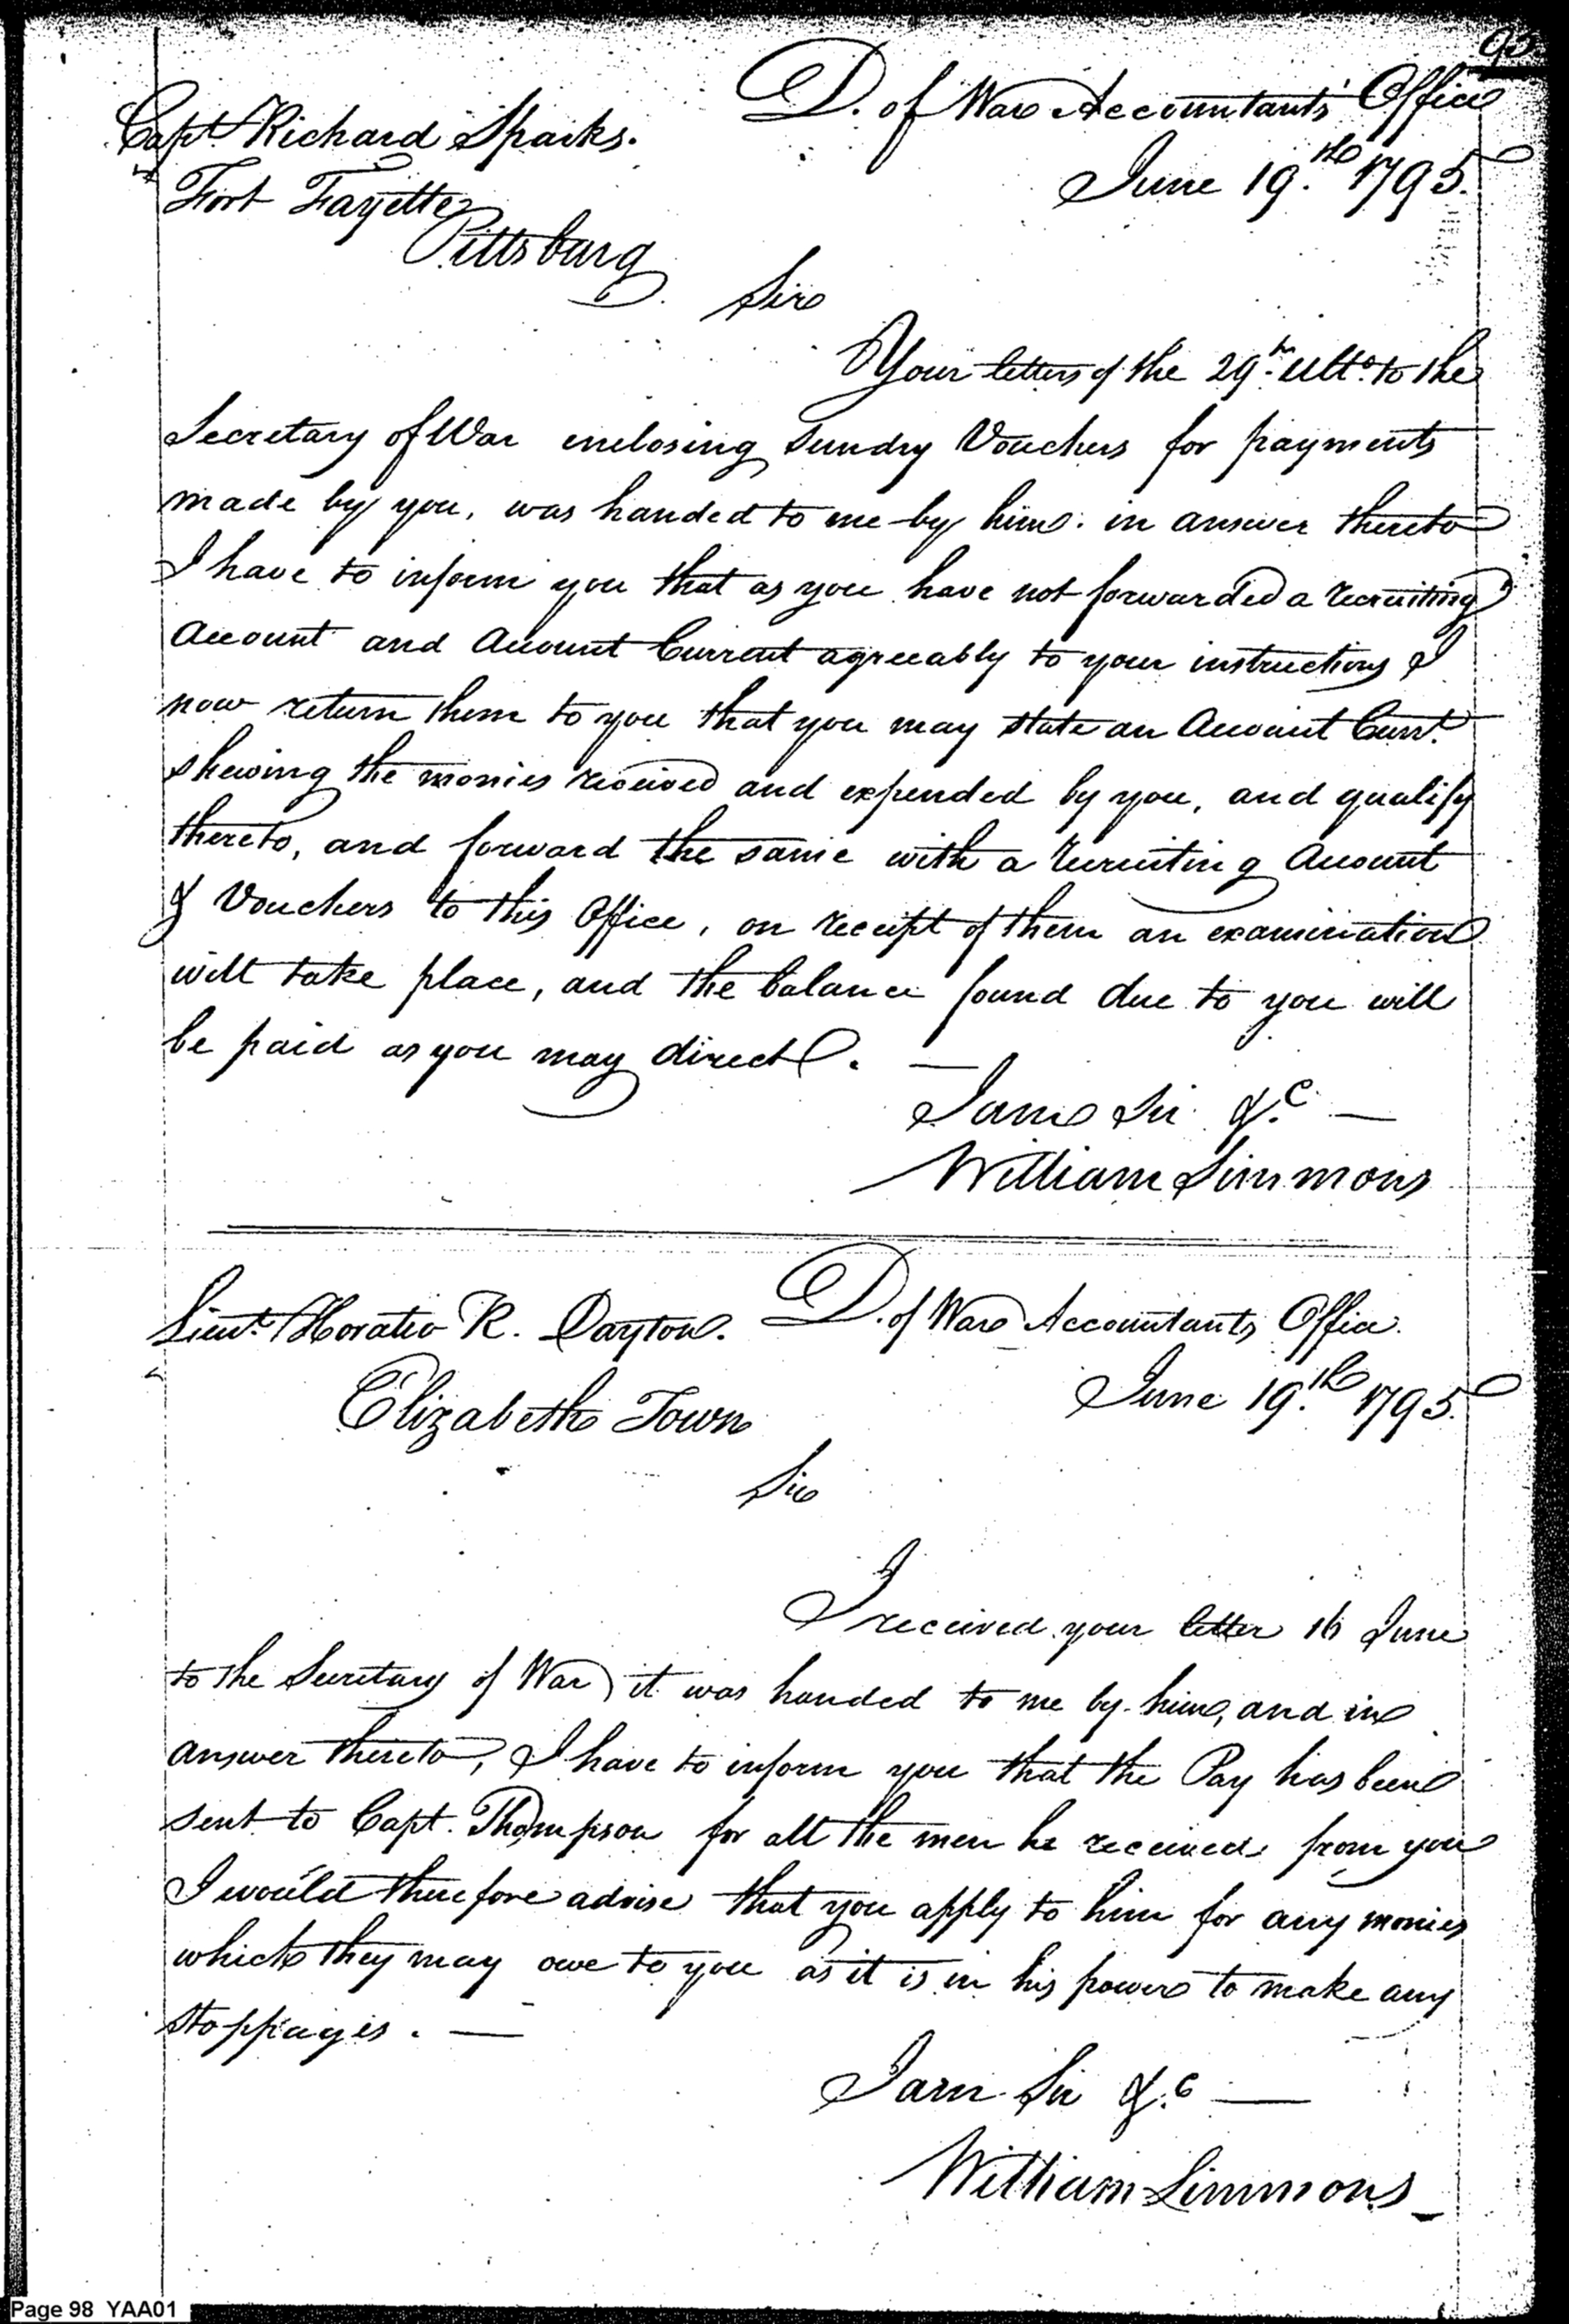 D. of War Accountants Office
Capt. Richard Sparks.
June 19.th 1795.
Fort Fayette
Pittsburg
Sir
Your letters of the 29.th Ulto. to the
Secretary of War enclosing Sundry Vouchers for payments
made by you, was handed to me by him. in answer thereto
I have to inform you that as you have not forwarded a recruiting
Account and Account Current agreeably to your instructions I
now return them to you that you may state an Account Currt.
shewing the monies received and expended by you, and qualify
thereto, and forward the same with a recruiting Account
& Vouchers to this Office, on receipt of them an examination
will take place, and the balance found due to you will
be paid as you may direct. —
I am Sir &.c —
William Simmons
Lieut. Horatio R. Dayton. D. of War Accountants Office.
June 19.th 1795.
Elizabeth Town
Sir
I received your letter 16 June
to the Secretary of War, it was handed to me by him, and in
answer thereto, I have to inform you that the Pay has been
sent to Capt. Thompson for all the men he received from you
I would therefore advise that you apply to him for any monies
which they may owe to you as it is in his power to make any
stoppages. —
I am Sir &.c —
William Simmons
Page 98 YAA01